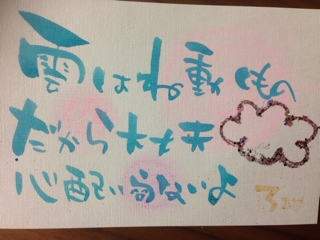 雲はね動くもの
だから大丈夫
心配いらないよ